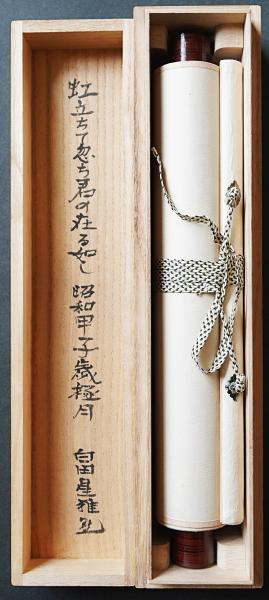 虹立ちて忽ち君の在る如し 昭和甲子歳極月 白田星雅